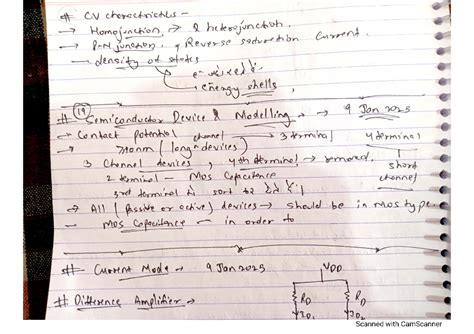 # CV charactristics -
→ Homojunction, → & heterojunction.
→ P-N junction, & Reverse saturation current.
- density of states
→ energy shells,
(19)
# Semiconductor Device & Modelling → 9 Jan 2025
- Contact potential channel → 3 terminal 4 terminal
→ (long n devices)
3 Channel devices, 4th terminal → removed, short channel
2 terminal - MOS Capacitance
3rd terminal
→ All (Passive or active) devices → should be in MOS type.
- MOS Capacitance - in order to
# Current Mode → 9 Jan 2025
VDD
# Difference Amplifier →
RD RD
ID1 ID2
Scanned with CamScanner